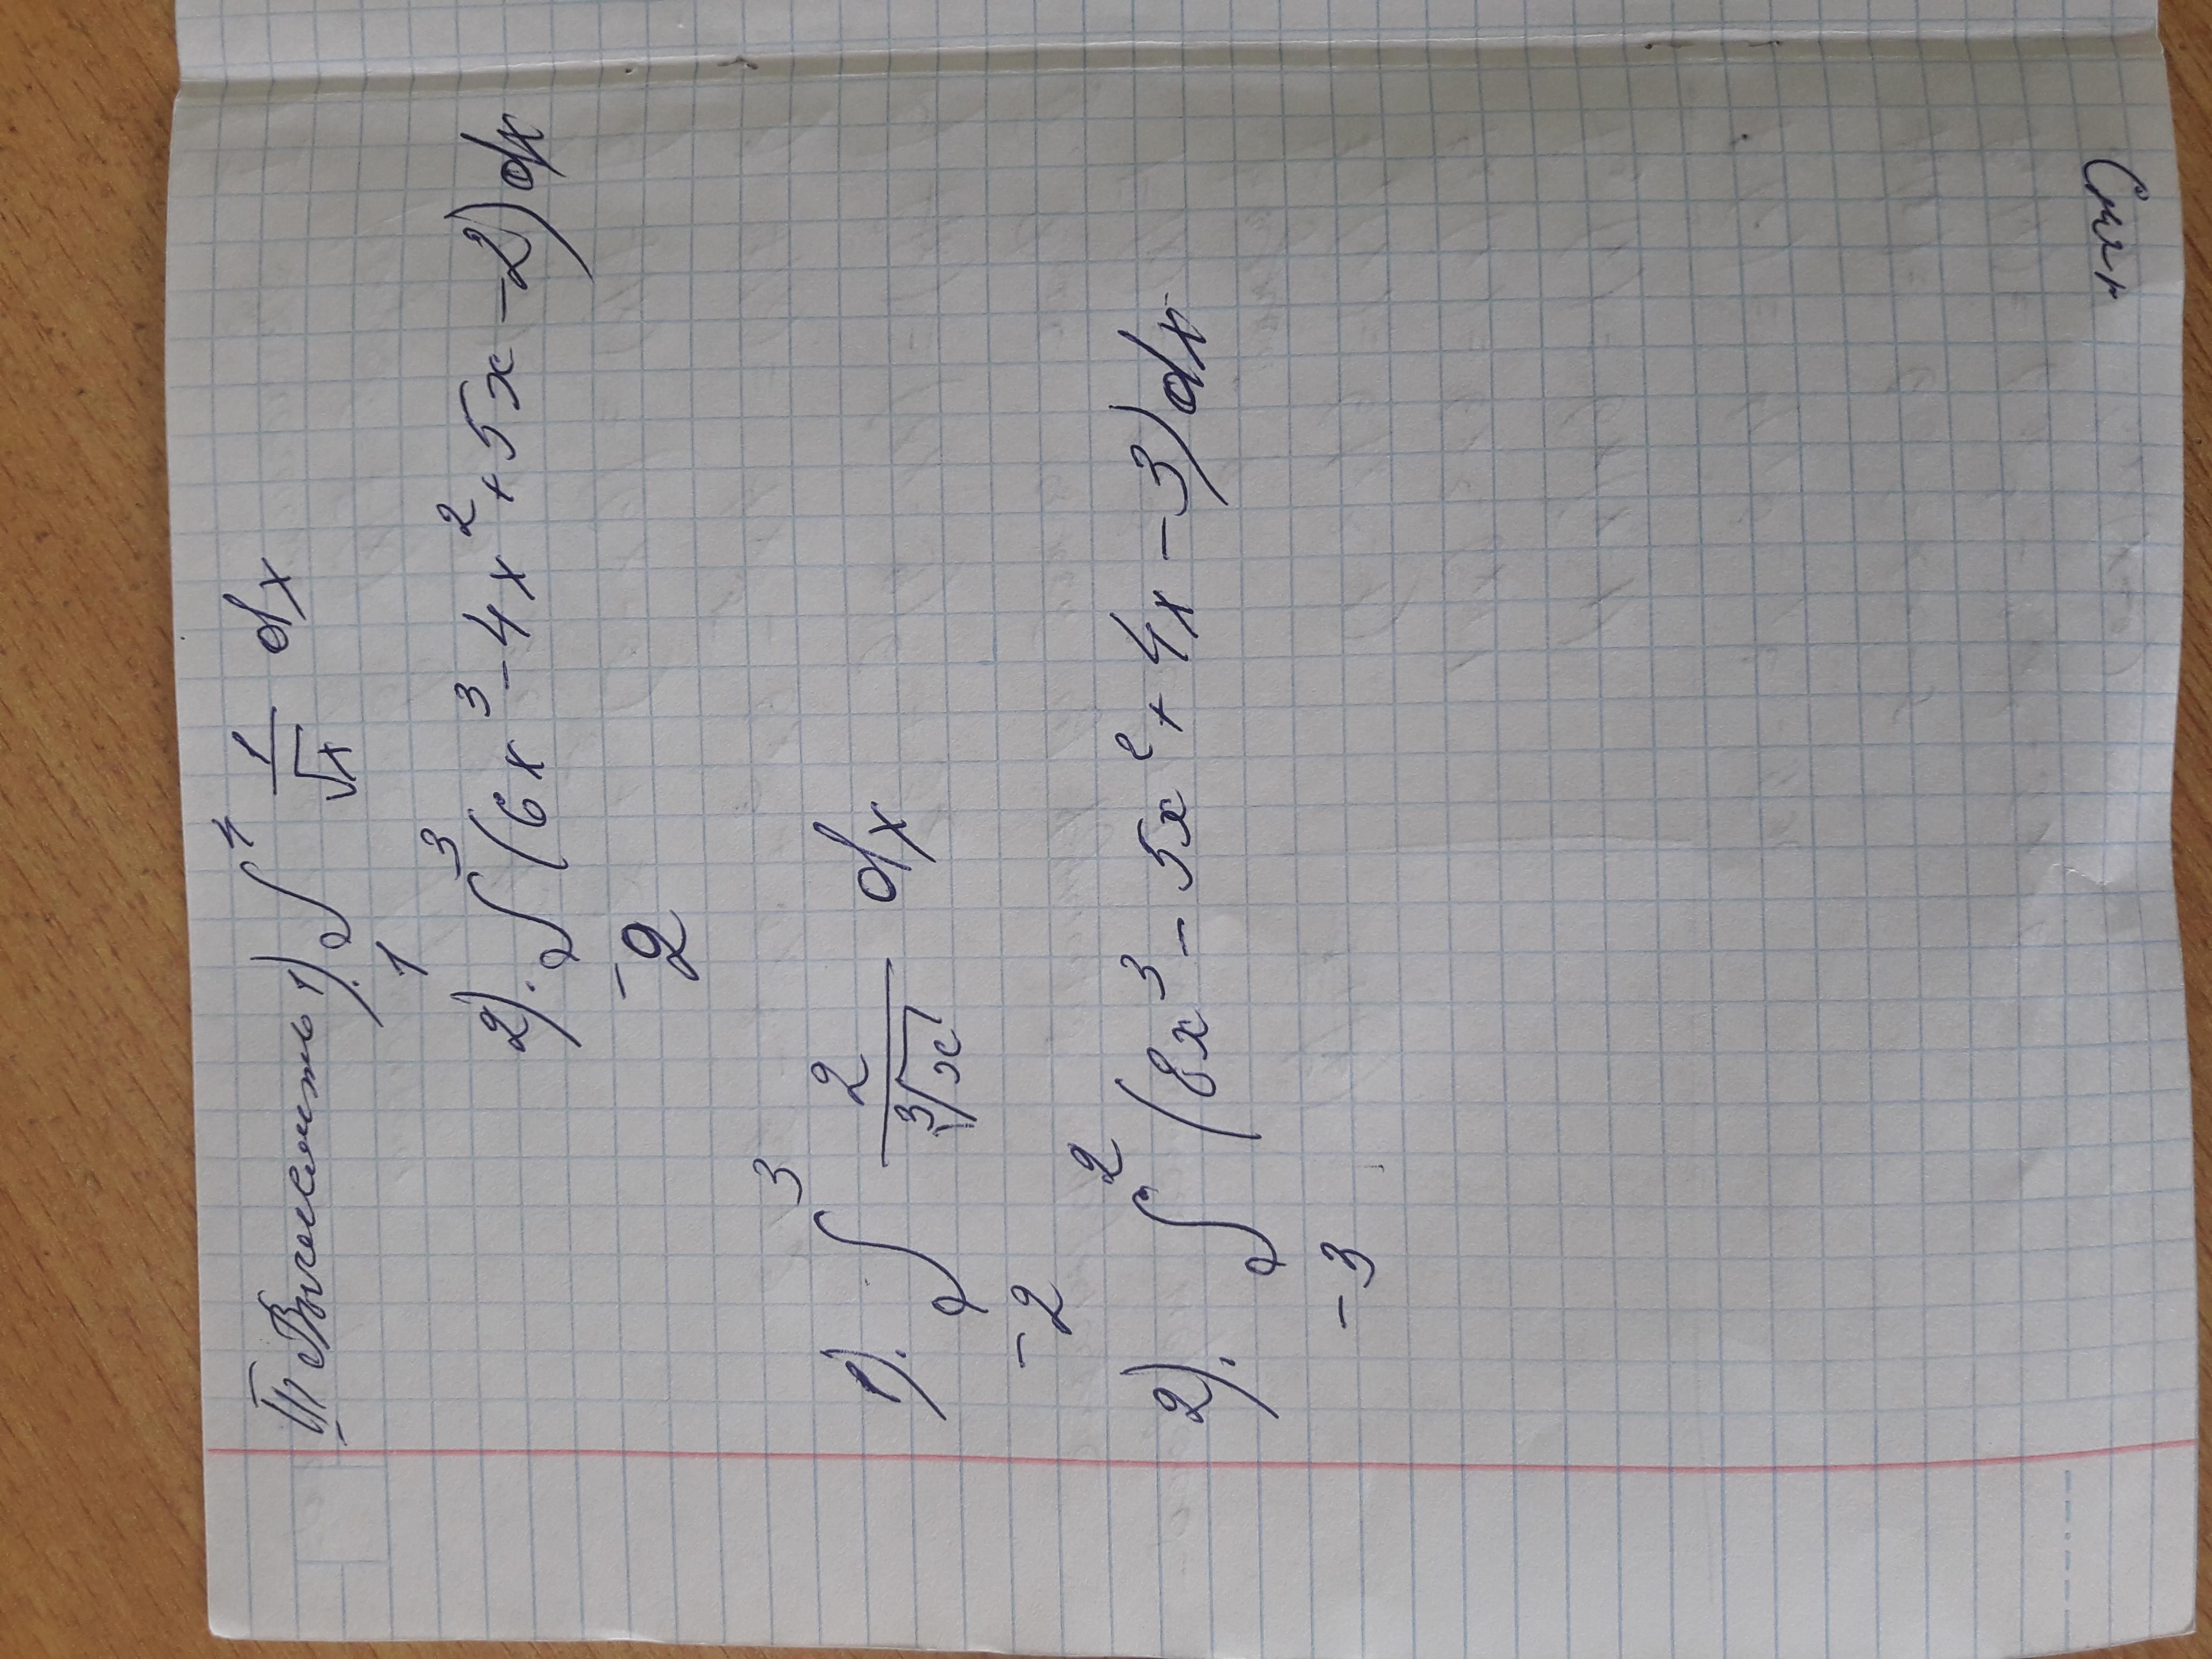 III Вычислить 1). ∫₁⁴ 1/√x dx
2). ∫₋₂³ (6x³ - 4x² + 5x - 2) dx
1). ∫₋₂³ 2/∛x dx
2). ∫₋₃² (8x³ - 5x² + 4x - 3) dx